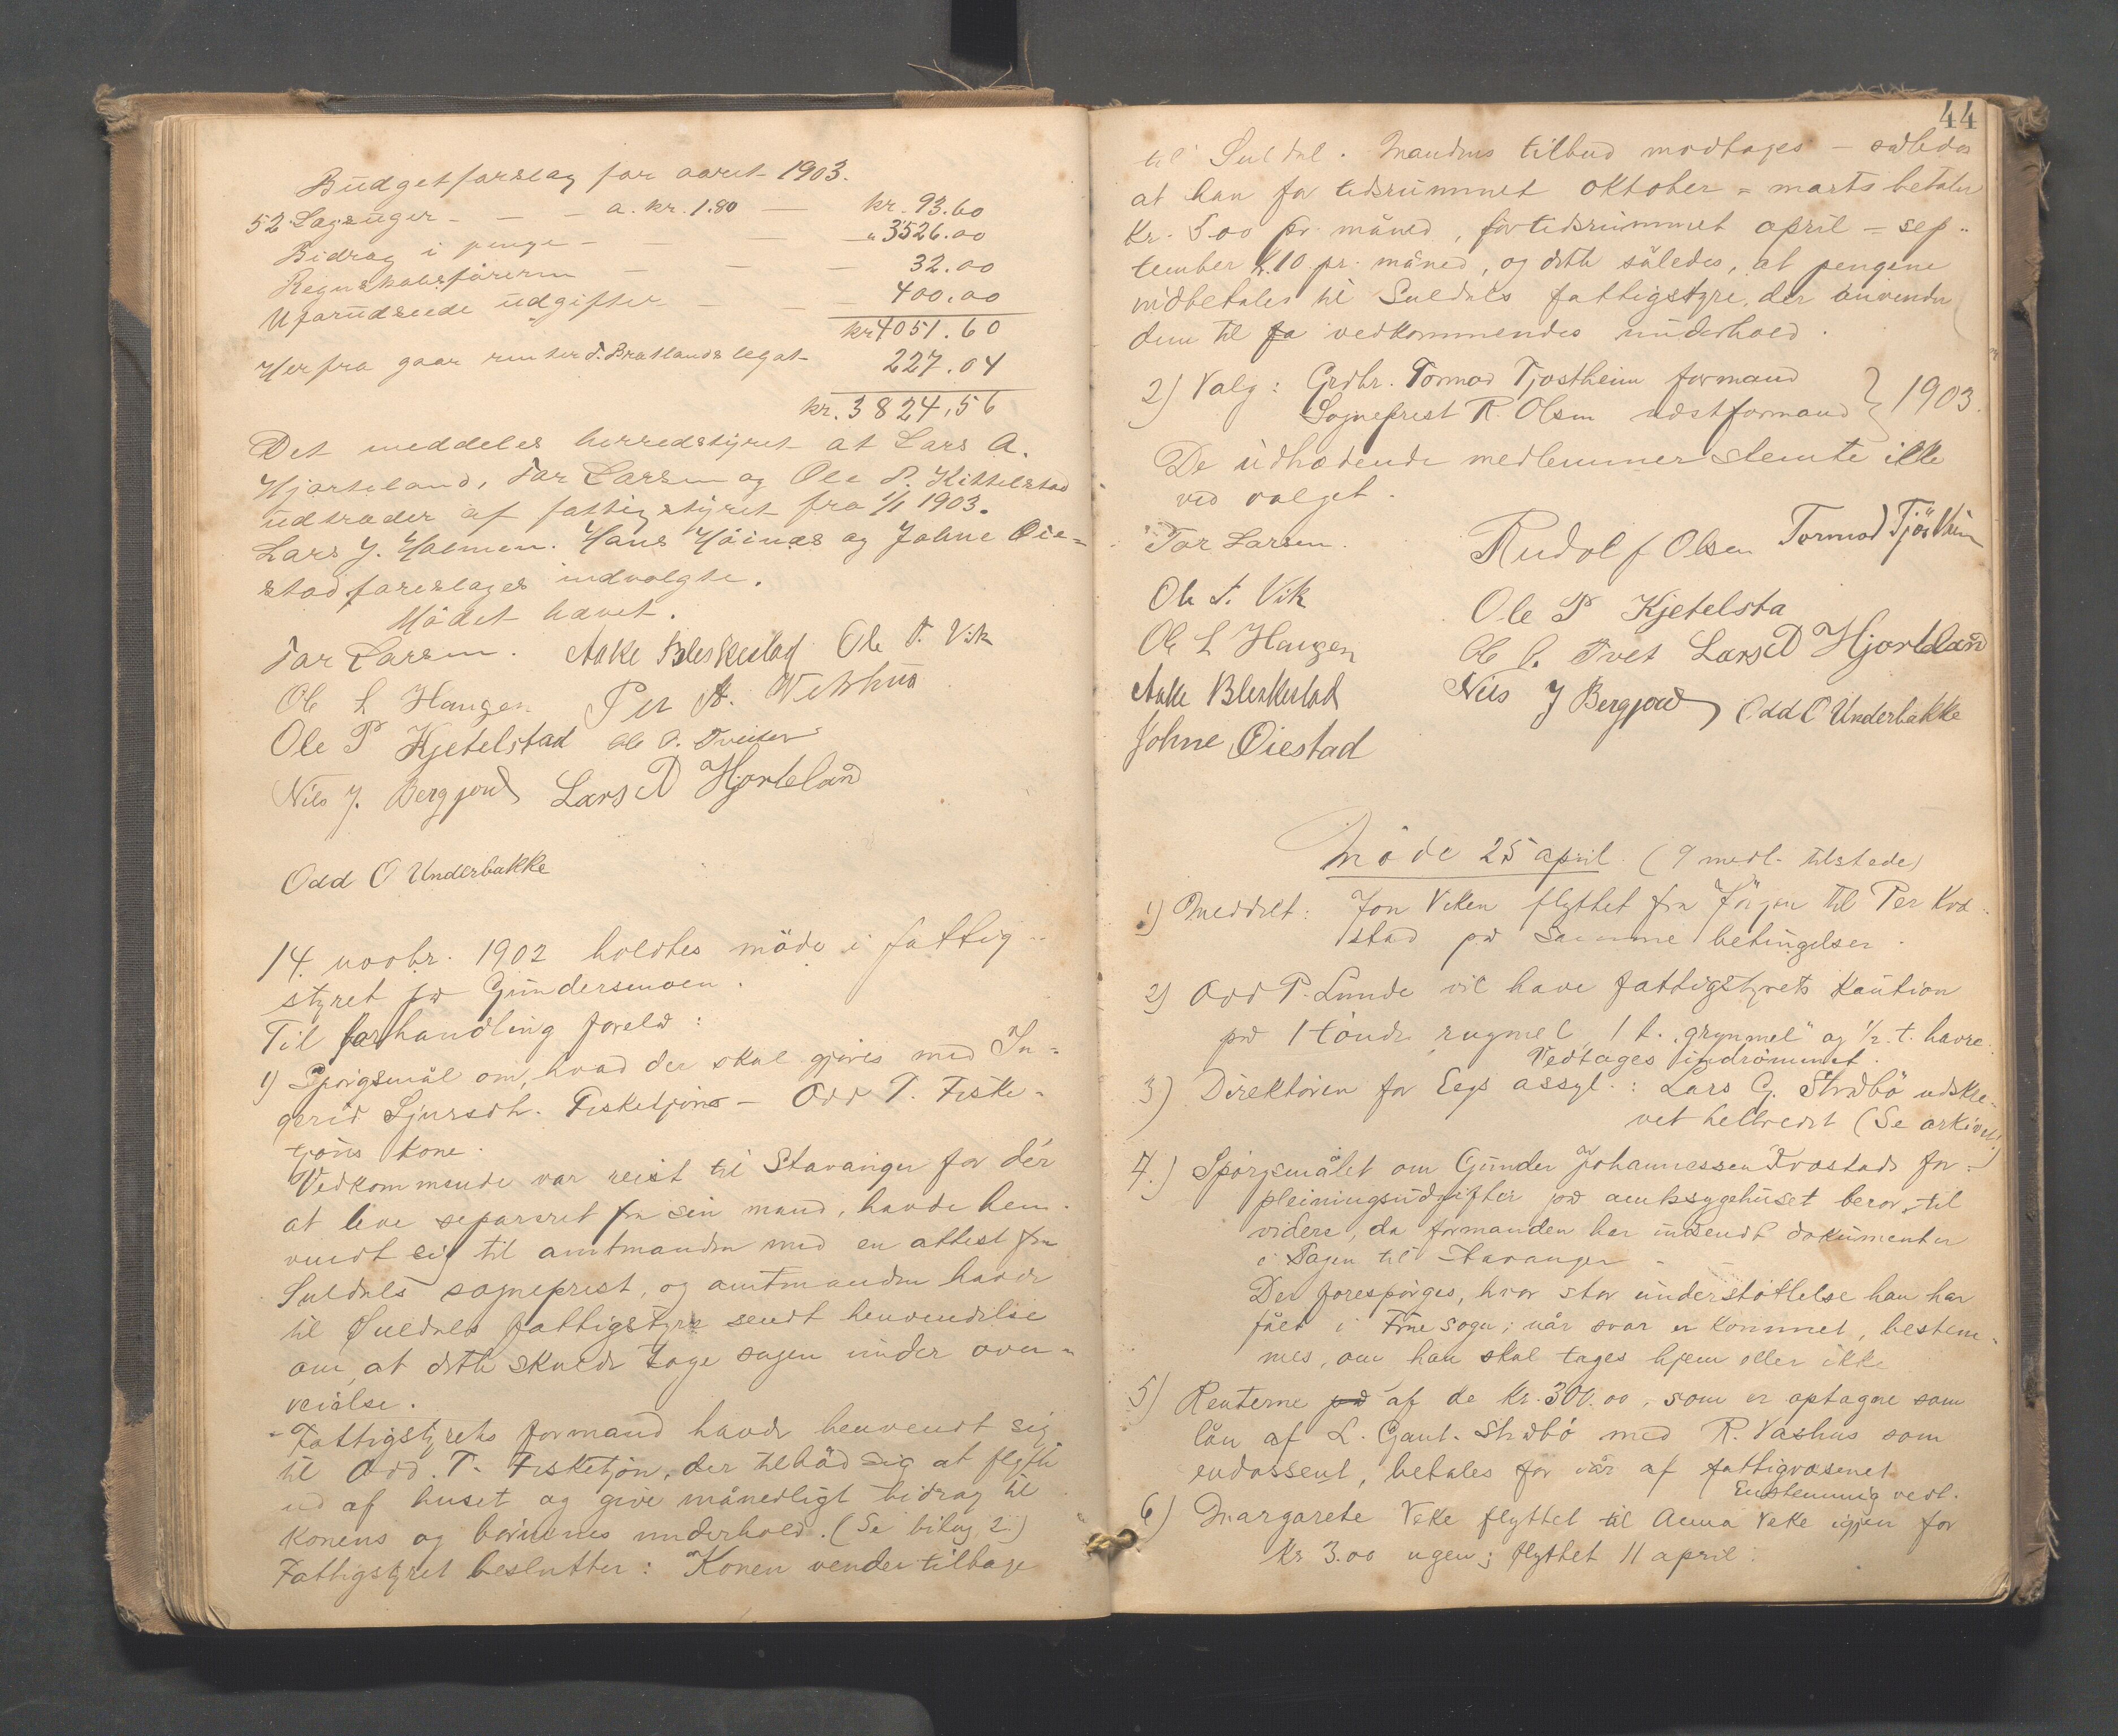 Budgetforslag for aaret 1903.
52 Lægsuger - - - a. kr. 1.80 — kr. 93.60
Bidrag i penge - — — " 3526.00
Regnskabsføreren — — — 32.00
Uforudseede udgifter — — 400.00
kr 4051.60
Herfra gaar renter d. Bratlands legat 227.04
kr. 3824,56
Det meddeles herredstyret at Lars A.
Hjorteland, Tor Larsen og Ole P. Kittelstad
udtræder af fattigstyret fra 1/1 1903.
Lars J. Holmen. Hans Höines og Johne Øie=
stad foreslages indvalgte.
Mødet hævet.
Tor Larsen. Aake Bleskestad Ole T. Vik
Ole L Haugen Per A. Vetrhus
Ole P Kjetelstad Ole O. Tveiten
Nils J. Bergjord Lars D Hjorteland
Odd O Underbakke
14. novbr. 1902 holdtes möde i fattig-
styret på Gundersmoen.
Til forhandling forelå:
1) Spörgsmål om, hvad der skal gjöres med In=
gerid Sjursdt. Fisketjöns — Odd T. Fiske-
tjöns kone.
Vedkommende var reist til Stavanger for dér
at leve separeret fra sin mand, havde hen-
vendt sig til amtmanden med en attest fra
Suldals sogneprest, og amtmanden havde
til Suldals fattigstyre sendt henvendelse
om, at dette skulde tage sagen under over-
veielse.
- Fattigstyrets formand havde henvendt sig
til Odd. T. Fisketjön, der tilböd sig at flytte
ud af huset og give månedligt bidrag til
konens og börnenes underhold. (Se bilag 2.)
Fattigstyret beslutter: Konen vender tilbage
44
til Suldal. Mandens tilbud modtages - således
at han for tidsrummet oktober = marts betaler
Kr. 5.00 pr. måned, for tidsrummet april = sep-
tember k. 10 pr. måned, og dette således, at pengene
indbetales til Suldals fattigstyre, der anvender
dem til fa vedkommendes underhold.
2) Valg: Grdbr. Tormod Tjostheim formand
Sogneprest R. Olsen næstformand } 1903.
De udtrædende medlemmer stemte ikke
ved valget.
Tor Larsen. Rudolf Olsen Tormod Tjöstheim
Ole T. Vik Ole P Kjetelsta
Ole L Haugen Ole O. Tvet Lars D Hjorteland
Aake Bleskestad Nils J Bergjord Odd O Underbakke
Johne Øiestad
Möde 25 april. (9 medl. tilstede)
1) Meddelt: Jon Veken flyttet fra Jörgen til Per Kva-
stad på samme betingelser.
2) Odd P. Lunde vil have fattigstyrets kaution
på 1 tönde rugmel, 1 t. "grynmel" og 1/2 t. havre.
Vedtages indrömmet.
3) Direktören for Eegs assyl.: Lars G. Stråbö udskre-
vet helbredet (Se arkivet!)
4.) Spörgsmålet om Gunder Johannessen Kvostads for-
pleiningsudgifter på amtssygehuset beror til
videre, da formanden har indsendt dokumenter
i sagen til Stavanger -
Der forespörges, hvor stor understöttelse han har
fået i Fine sogn; når svar er kommet, bestem-
mes, om han skal tages hjem eller ikke
5) Renterne på af de kr. 300.00, som er optagne som
lån af L. Gaut. Stråbö med R. Vashus som
endossent, betales for iår af fattigvæsenet.
Enstemmig vedt.
6) Margarete Veke flyttet til Anna Veke igjen for
kr 3.00 ugen; flyttet 11 april.